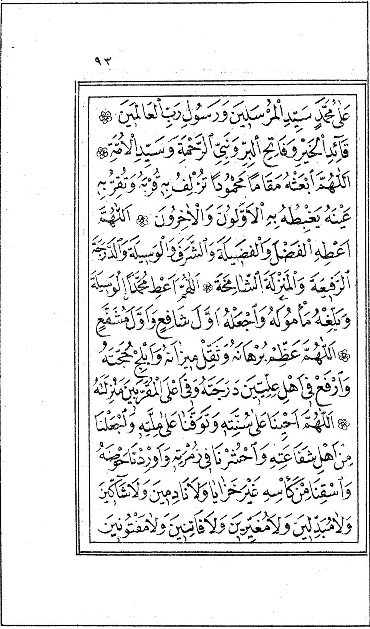 ٩٢
عَلٰى مُحَمَّدٍ سَيِّدِ الْمُرْسَلِيْنَ وَرَسُوْلِ رَبِّ الْعَالَمِيْنَ ۞
قَائِدِ الْخَيْرِ وَفَاتِحِ الْبِرِّ وَنَبِيِّ الرَّحْمَةِ وَسَيِّدِ الْاُمَّةِ ۞
اَللّٰهُمَّ ابْعَثْهُ مَقَامًا مَحْمُوْدًا تُزْلِفُ بِهِ قُرْبَهُ وَتُقِرُّ بِهِ
عَيْنَهُ يَغْبِطُهُ بِهِ الْاَوَّلُوْنَ وَالْاٰخِرُوْنَ ۞ اَللّٰهُمَّ
اَعْطِهِ الْفَضْلَ وَالْفَضِيْلَةَ وَالشَّرَفَ وَالْوَسِيْلَةَ وَالدَّرَجَةَ
الرَّفِيْعَةَ وَالْمَنْزِلَةَ الشَّامِخَةَ ۞ اَللّٰهُمَّ اَعْطِ مُحَمَّدًا الْوَسِيْلَةَ
وَبَلِّغْهُ مَأْمُوْلَهُ وَاجْعَلْهُ اَوَّلَ شَافِعٍ وَاَوَّلَ مُشَفَّعٍ
۞ اَللّٰهُمَّ عَظِّمْ بُرْهَانَهُ وَثَقِّلْ مِيْزَانَهُ وَاَبْلِجْ حُجَّتَهُ
وَارْفَعْ فِيْ اَهْلِ عِلِّيِّيْنَ دَرَجَتَهُ وَفِيْ اَعْلَى الْمُقَرَّبِيْنَ مَنْزِلَتَهُ
۞ اَللّٰهُمَّ اَحْيِنَا عَلٰى سُنَّتِهِ وَتَوَفَّنَا عَلٰى مِلَّتِهِ وَاجْعَلْنَا
مِنْ اَهْلِ شَفَاعَتِهِ وَاحْشُرْنَا فِيْ زُمْرَتِهِ وَاَوْرِدْنَا حَوْضَهُ
وَاسْقِنَا مِنْ كَأْسِهِ غَيْرَ خَزَايَا وَلَا نَادِمِيْنَ وَلَا شَاكِّيْنَ
وَلَا مُبَدِّلِيْنَ وَلَا مُغَيِّرِيْنَ وَلَا فَاتِنِيْنَ وَلَا مَفْتُوْنِيْنَ